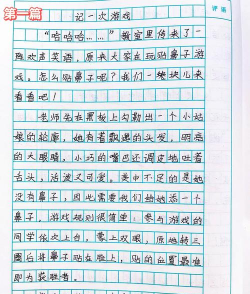 第一篇
评语
记一次游戏
“哈哈哈……”教室里传来了一
阵欢声笑语，原来大家在玩贴鼻子游
戏。怎么贴鼻子呢？我们一块块儿来
看看吧！
老师先在黑板上勾勒出一个小姑
娘的轮廓，她有着飘逸的头发，明亮
的大眼睛，小巧的嘴巴还调皮地吐着
舌头，活泼又可爱。美中不足的是她
没有鼻子，因此需要我们给她添一个
鼻子。游戏规则很简单，参与游戏的
同学依次上台，蒙上双眼，原地转三
圈后将鼻子贴在脸上，贴的位置最准
即为获胜者。